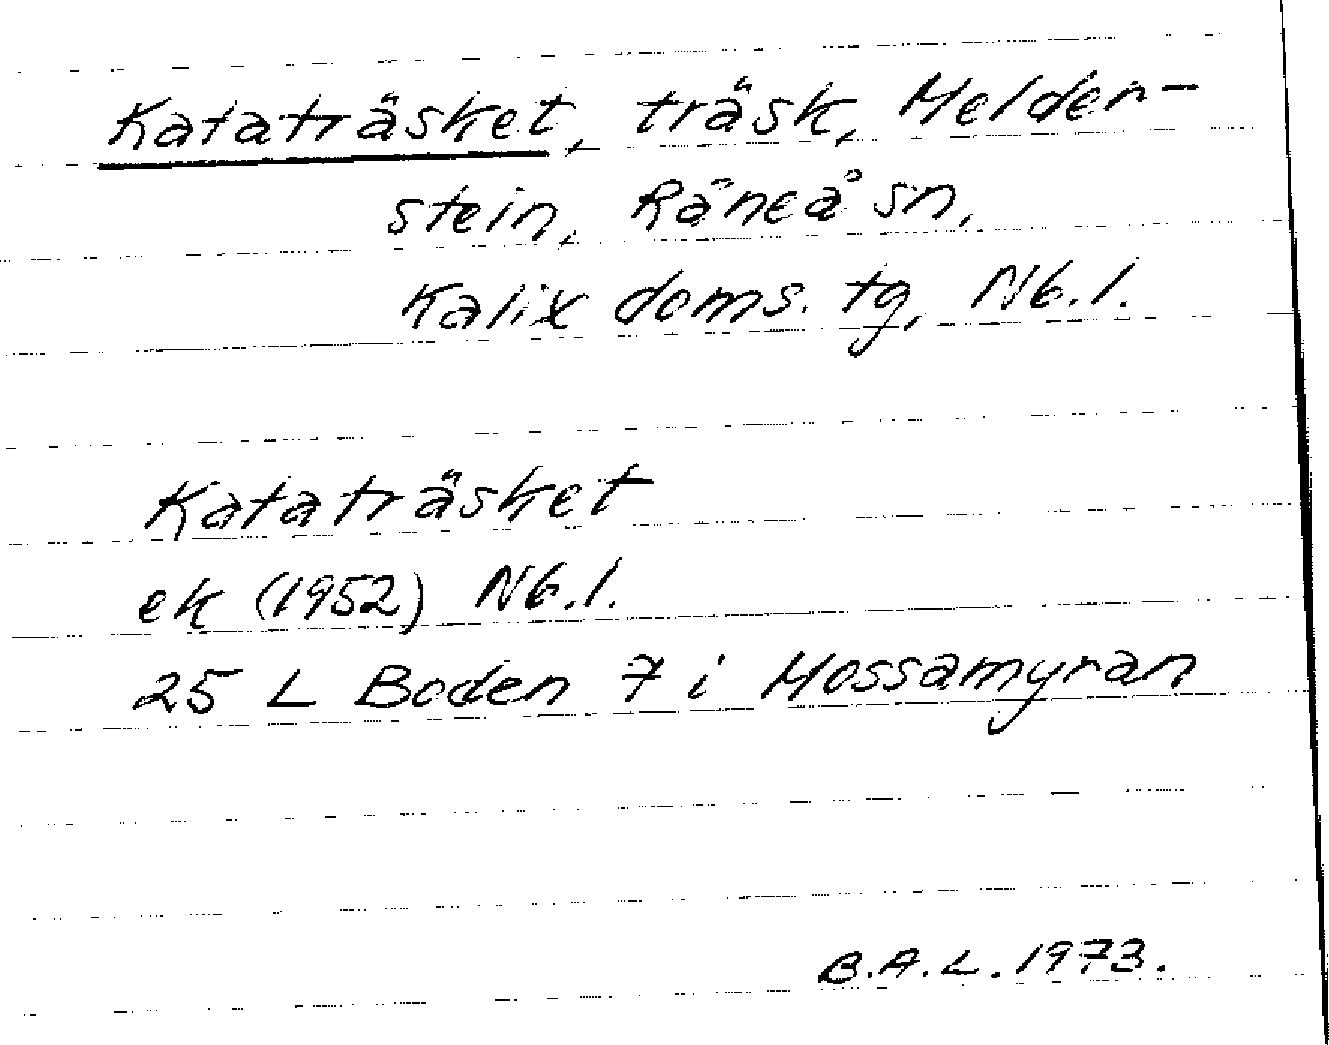 Kataträsket, träsk, Melder-
stein, Råneå sn,
Kalix doms. tg, Nb. l.
Kataträsket
ek (1952) Nb. l.
25 L Boden 7 i Mossamyran
B.A.L. 1973.